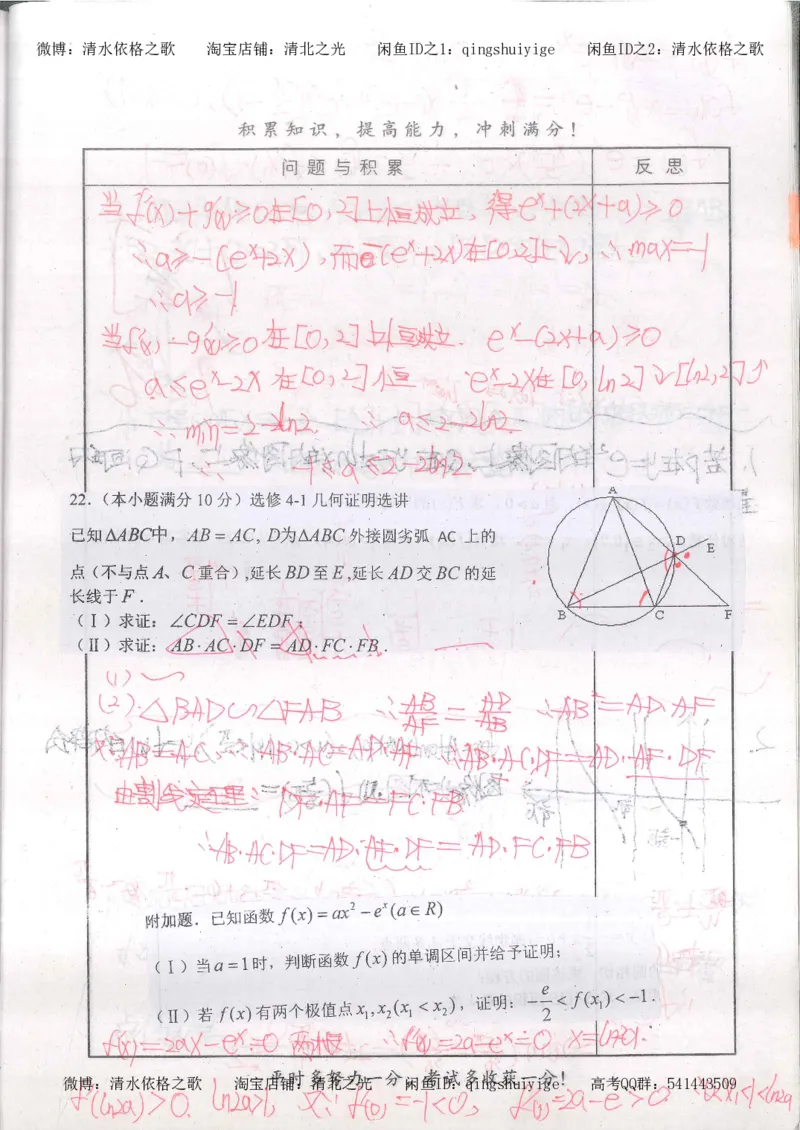 微博：清水依格之歌 淘宝店铺：清北之光 闲鱼ID之1：qingshuiyige 闲鱼ID之2：清水依格之歌
积累知识，提高能力，冲刺满分！
问题与积累 反思
当f(x)+g(x)≥0在[0,2]上恒成立，得e^x+(2x+a)≥0
∴a≥-(e^x+2x)，而-(e^x+2x)在[0,2]上↘，∴max=-1
∴a≥-1
当f(x)-g(x)≥0在[0,2]上恒成立. e^x-(2x+a)≥0
a≤e^x-2x在[0,2]恒 ∵e^x-2x在[0,ln2]↘[ln2,2]↗
∴min=2-2ln2. ∴a≤2-2ln2.
∴ -1≤a≤2-2ln2
22.（本小题满分10分）选修4-1几何证明选讲
已知ΔABC中，AB=AC, D为ΔABC外接圆劣弧 AC 上的
点（不与点A、C重合）,延长BD至E,延长AD交BC的延
长线于F．
（Ⅰ）求证：∠CDF=∠EDF；
（Ⅱ）求证：AB·AC·DF=AD·FC·FB．
A
D
E
B
C
F
(1)
(2)：△BAD∽△FAB ∴AB/AF=AD/AB ∴AB²=AD·AF，
又∵AB=AC，∴AB·AC=AD·AF ∴AB·AC·DF=AD·AF·DF
由割线定理：DF·AF=FC·FB
∴AB·AC·DF=AD·AF·DF=AD·FC·FB
附加题．已知函数f(x)=ax²-e^x(a∈R)
（Ⅰ）当a=1时，判断函数f(x)的单调区间并给予证明；
（Ⅱ）若f(x)有两个极值点x₁,x₂(x₁<x₂)，证明：-e/2<f(x₁)<-1.
f'(x)=2ax-e^x=0 两根 ∴f''(x)=2a-e^x=0 x=ln(2a).
平时多努力一分，考试多收获一分！
微博：清水依格之歌 淘宝店铺：清北之光 闲鱼ID之1：qingshuiyige 高考QQ群：541443509
f'(ln2a)>0. ln2a>1, 又∵f'(0)=-1<0, f'(1)=2a-e>0 ∴0<x₁<1<ln2a